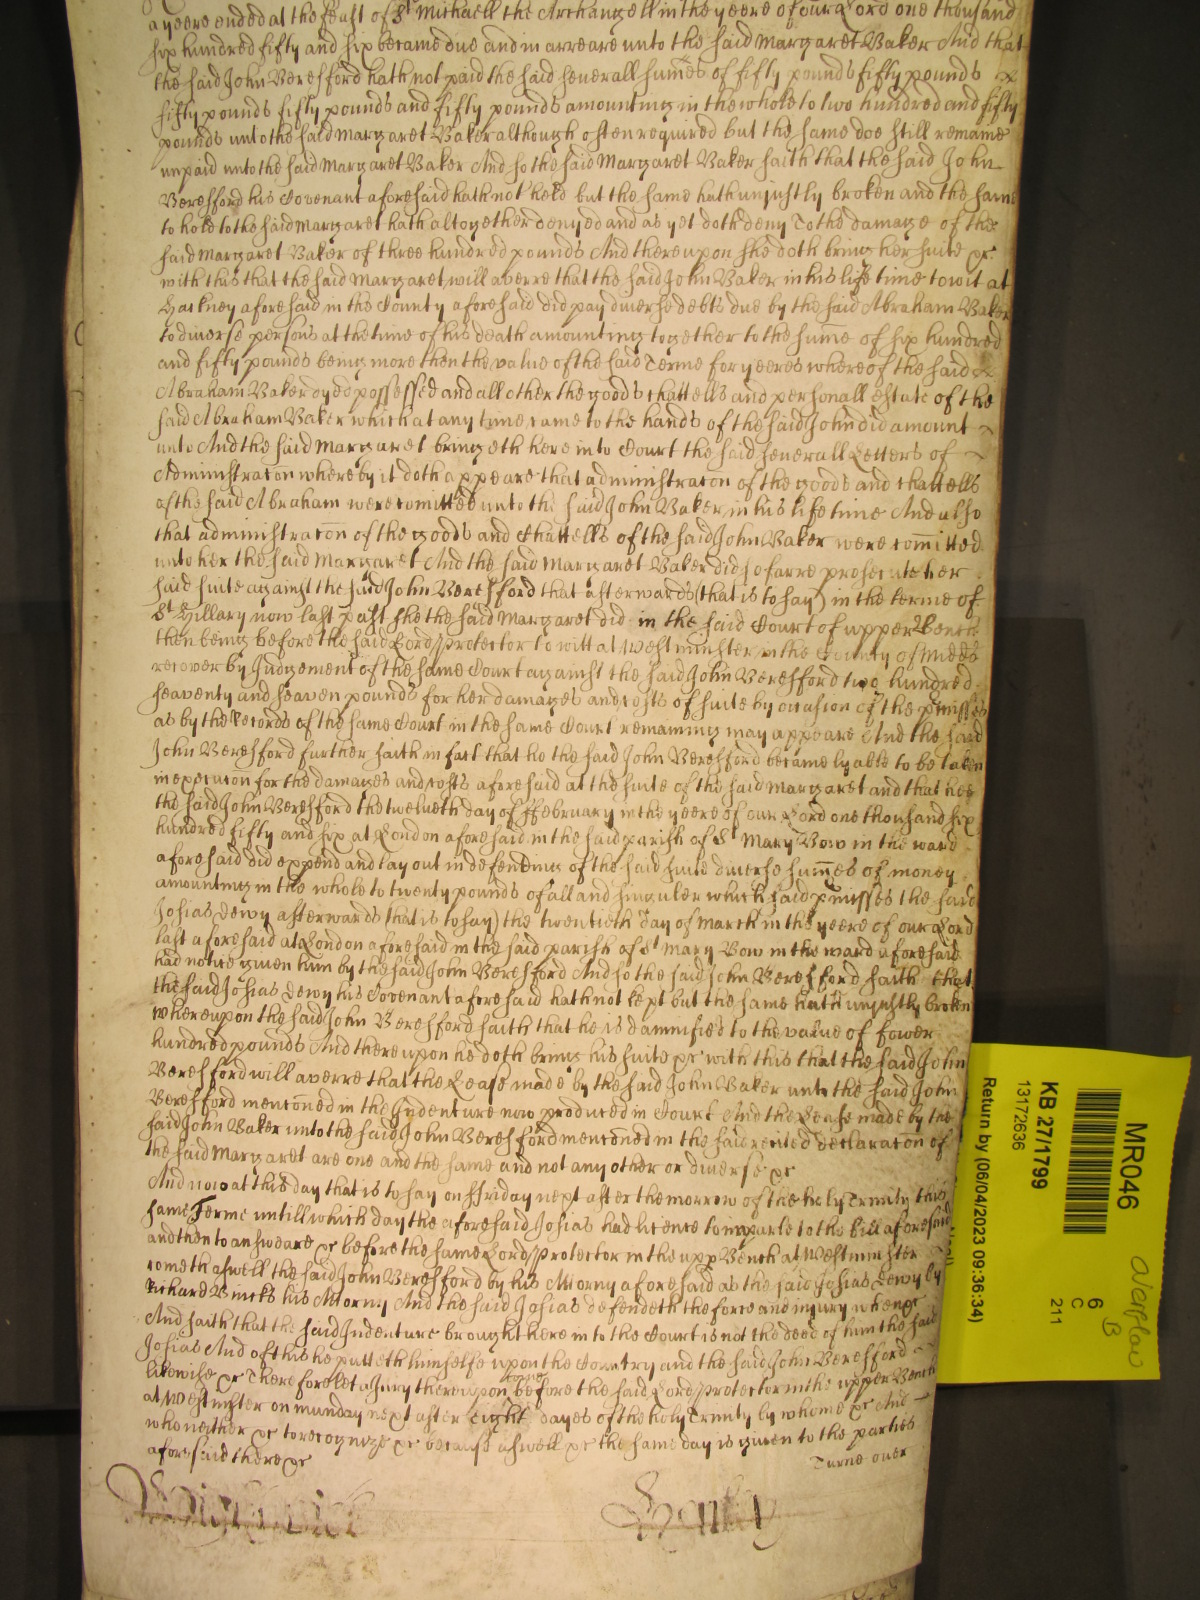 a yeere ended at the feast of St Michaell the Archangell in the yeere of our Lord one thousand
six hundred fifty and six became due and in arreare unto the said Margaret Baker And that
the said John Beresford hath not paid the said severall sumes of fifty pounds fifty pounds
fifty pounds fifty pounds and fifty pounds amounting in the whole to two hundred and fifty
pounds unto the said Margaret Baker although often required but the same doe still remaine
unpaid unto the said Margaret Baker And so the said Margaret Baker saith that the said John
Beresford his Covenant aforesaid hath not held but the same hath unjustly broken and the same
to hold to the said Margaret hath altogether denyed and as yet doth deny To the damage of the
said Margaret Baker of three hundred pounds And thereupon she doth bring her suite &c
with this that the said Margaret will averre that the said John Baker in his life time to wit at
Hackney aforesaid in the County aforesaid did pay diverse debts due by the said Abraham Baker
to diverse persons at the time of his death amounting together to the sume of six hundred
and fifty pounds being more then the value of the said Terme for yeeres whereof the said
Abraham Baker dyed possessed and all other the goods chattells and personall estate of the
said Abraham Baker which at any time came to the hands of the said John did amount
unto And the said Margaret bringeth here into Court the said severall Letters of
Administracon whereby it doth appeare that administracon of the goods and chattells
of the said Abraham were comitted unto the said John Baker in his life time And also
that administracon of the goods and Chattells of the said John Baker were comitted
unto her the said Margaret And the said Margaret Baker did so farre prosecute her
said suite against the said John Beresford that afterwards (that is to say) in the terme of
St Hillary now last past she the said Margaret did in the said Court of upper Bench
then being before the said Lord Protector to witt at Westminster in the County of Midds
recover by Judgement of the same Court against the said John Beresford two hundred
seaventy and seaven pounds for her damages and costs of suite by occasion of the pmisses
as by the Records of the same Court in the same Court remaining may appeare And the said
John Beresford further saith in fact that he the said John Beresford became lyable to be taken
in execucon for the damages and costs aforesaid at the suite of the said Margaret and that hee
the said John Beresford the twelveth day of ffebruary in the yeere of our Lord one thousand six
hundred fifty and six at London aforesaid in the said parish of St Mary Bow in the ward
aforesaid did expend and lay out in defending of the said suite diverse sumes of money
amounting in the whole to twenty pounds of all and singuler which said pmisses the said
Josias Dewy afterwards (that is to say) the twentieth day of March in the yeere of our Lord
last aforesaid at London aforesaid in the said parish of St Mary Bow in the ward aforesaid
had notice given him by the said John Beresford And so the said John Beresford saith that
the said Josias Dewy his Covenant aforesaid hath not kept but the same hath unjustly broken
whereupon the said John Beresford saith that he is damnified to the value of fower
hundred pounds And thereupon he doth bring his suite &c with this that the said John
Beresford will averre that the Lease made by the said John Baker unto the said John
Beresford menconed in the Indenture now produced in Court And the Lease made by the
said John Baker unto the said John Beresford menconed in the said recited declaracon of
the said Margaret are one and the same and not any other or diverse &c
And now at this day that is to say on ffriday next after the morrow of the holy Trinity this
same Terme untill which day the aforesaid Josias had licence to imparle to the bill aforesaid
and then to answeare &c before the same Lord Protector in the upp Bench at Westminster
cometh aswell the said John Beresford by his Attorny aforesaid as the said Josias Dewy by
Richard his Attorny And the said Josias defendeth the force and injury when &c
And saith that the said Indenture brought here in to the Court is not the deed of him the said
Josias And of this he putteth himselfe upon the Country and the said John Beresford
likewise &c Therefore let a Jury thereupon come before the said Lord Protector in the upper Bench
at Westmster on munday next after eight dayes of the holy Trinity by whome &c And
who neither &c to recognize &c because aswell &c the same day is given to the parties
aforesaid there &c
Turne over
MR046
6
C
211
KB 27/1799
13172636
Return by (06/04/2023 09:36:34)
Overflow
B